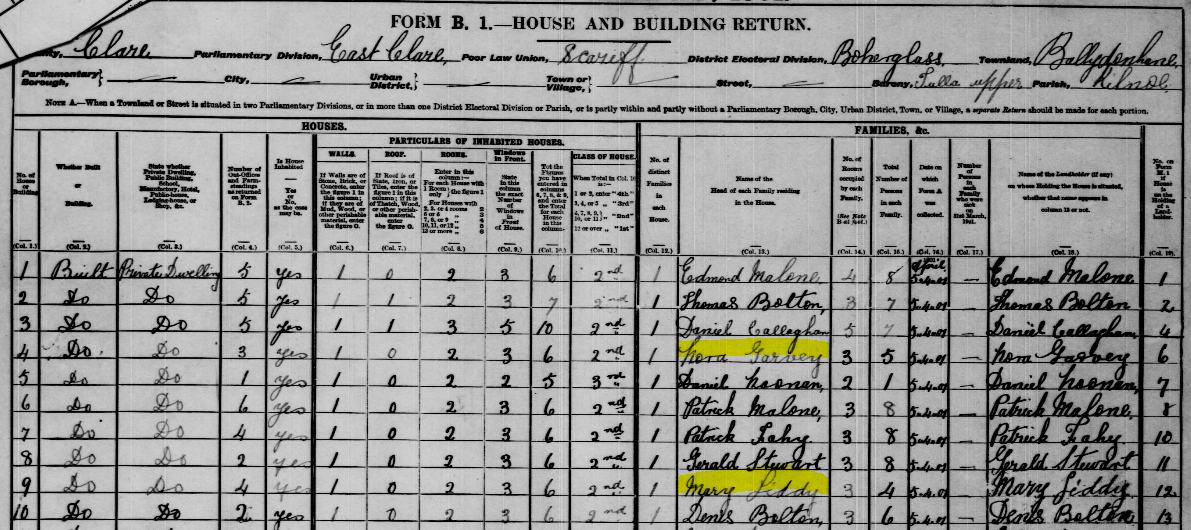 FORM B. 1.—HOUSE AND BUILDING RETURN.
Clare Parliamentary Division, East Clare, Poor Law Union, Scariff District Electoral Division, Boherglass, Townland,
Parliamentary Borough, — City, — Urban District, — Town or Village, — Street, — Barony, Tulla upper Parish, Kilnoe.
NOTE A.—When a Townland or Street is situated in two Parliamentary Divisions, or in more than one District Electoral Division or Parish, or is partly within and partly without a Parliamentary Borough, City, Urban District, Town, or Village, a separate Return should be made for each portion.
HOUSES. FAMILIES, &c.
PARTICULARS OF INHABITED HOUSES.
WALLS. ROOF. ROOMS. Windows in Front. CLASS OF HOUSE.
No. of House or Building
Whether Built or Building.
State whether Private Dwelling, Public Building, School, Manufactory, Hotel, Public-house, Lodging-house, or Shop, &c.
Number of Out-Offices and Farm-steadings as returned on Form B. 2.
Is House Inhabited Yes or No, as the case may be.
If Walls are of Stone, Brick, or Concrete, enter the figure 1 in this column; if they are of Mud, Wood, or other perishable material, enter the figure 0.
If Roof is of Slate, Iron, or Tiles, enter the figure 1 in this column; if it is of Thatch, Wood, or other perishable material, enter the figure 0.
Enter in this column:— For each House with 1 Room the figure 1 only
For Houses with 2, 3, or 4 rooms 2
5 or 6 " 3
7, 8, or 9 " 4
10, 11, or 12 " 5
13 or more " 6
State in this column the Number of Windows in Front of House.
Tot the Figures you have entered in columns 6, 7, 8, 9, and enter the Total for each House in this column.
When Total in Col. 10 is:—
1 or 2, enter "4th"
3, 4, or 5 " "3rd"
"2nd"
12 or over " "1st"
No. of distinct Families in each House.
Name of the Head of each Family residing in the House.
No. of Rooms occupied by each Family.
Total Number of Persons in each Family.
Date on which Form A was collected.
Number of Persons in Family who were sick on 31st March, 1901.
Name of the Landholder (if any) on whose Holding the House is situated, whether that name appears in column 13 or not.
No. on Form M. 1 of the Holding of a Landholder.
(Col. 1.) (Col. 2.) (Col. 3.) (Col. 4.) (Col. 5.) (Col. 6.) (Col. 7.) (Col. 8.) (Col. 9.) (Col. 10.) (Col. 11.) (Col. 12.) (Col. 13.) (Col. 14.) (Col. 15.) (Col. 16.) (Col. 17.) (Col. 18.) (Col. 19.)
1 Built Private Dwelling 5 yes 1 0 2 3 6 2nd 1 Edmond Malone 4 8 April 5.4.01 — Edmond Malone 1
2 Do Do 5 yes 1 1 2 3 7 2nd 1 Thomas Bolton, 3 7 5.4.01 — Thomas Bolton 2
3 Do Do 5 yes 1 1 3 5 10 2nd 1 Daniel Callaghan 5 7 5.4.01 — Daniel Callaghan 4
4 Do Do 3 yes 1 0 2 3 6 2nd 1 Nora Garvey 3 5 5.4.01 — Nora Garvey 6
5 Do Do 1 yes 1 0 2 2 5 3rd 1 Daniel Noonan, 2 1 5.4.01 — Daniel Noonan, 7
6 Do Do 6 yes 1 0 2 3 6 2nd 1 Patrick Malone, 3 8 5.4.01 — Patrick Malone. 8
7 Do Do 4 yes 1 0 2 3 6 2nd 1 Patrick Fahy. 3 8 5.4.01 — Patrick Fahy 10
8 Do Do 2 yes 1 0 2 3 6 2nd 1 Gerald Stewart 3 8 5.4.01 — Gerald Stewart 11
9 Do Do 4 yes 1 0 2 3 6 2nd 1 Mary Liddy 3 4 5.4.01 — Mary Liddy 12
10 Do Do 2 yes 1 0 2 3 6 2nd 1 Denis Bolton, 3 6 5.4.01 — Denis Bolton, 13